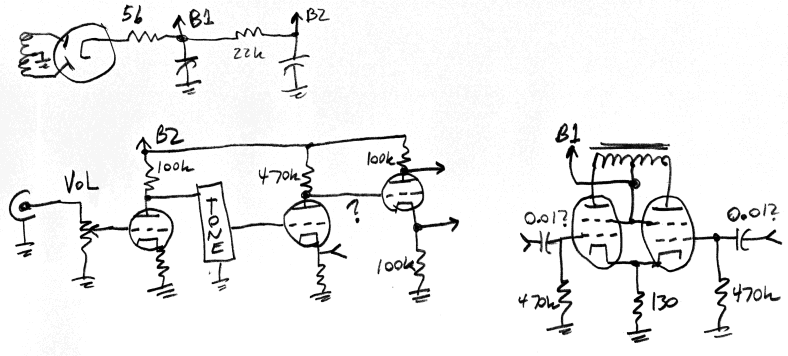 56
B1
B2
22k
B2
100k
470k
100k
VOL
TONE
?
100k
B1
0.01?
0.01?
470k
130
470k